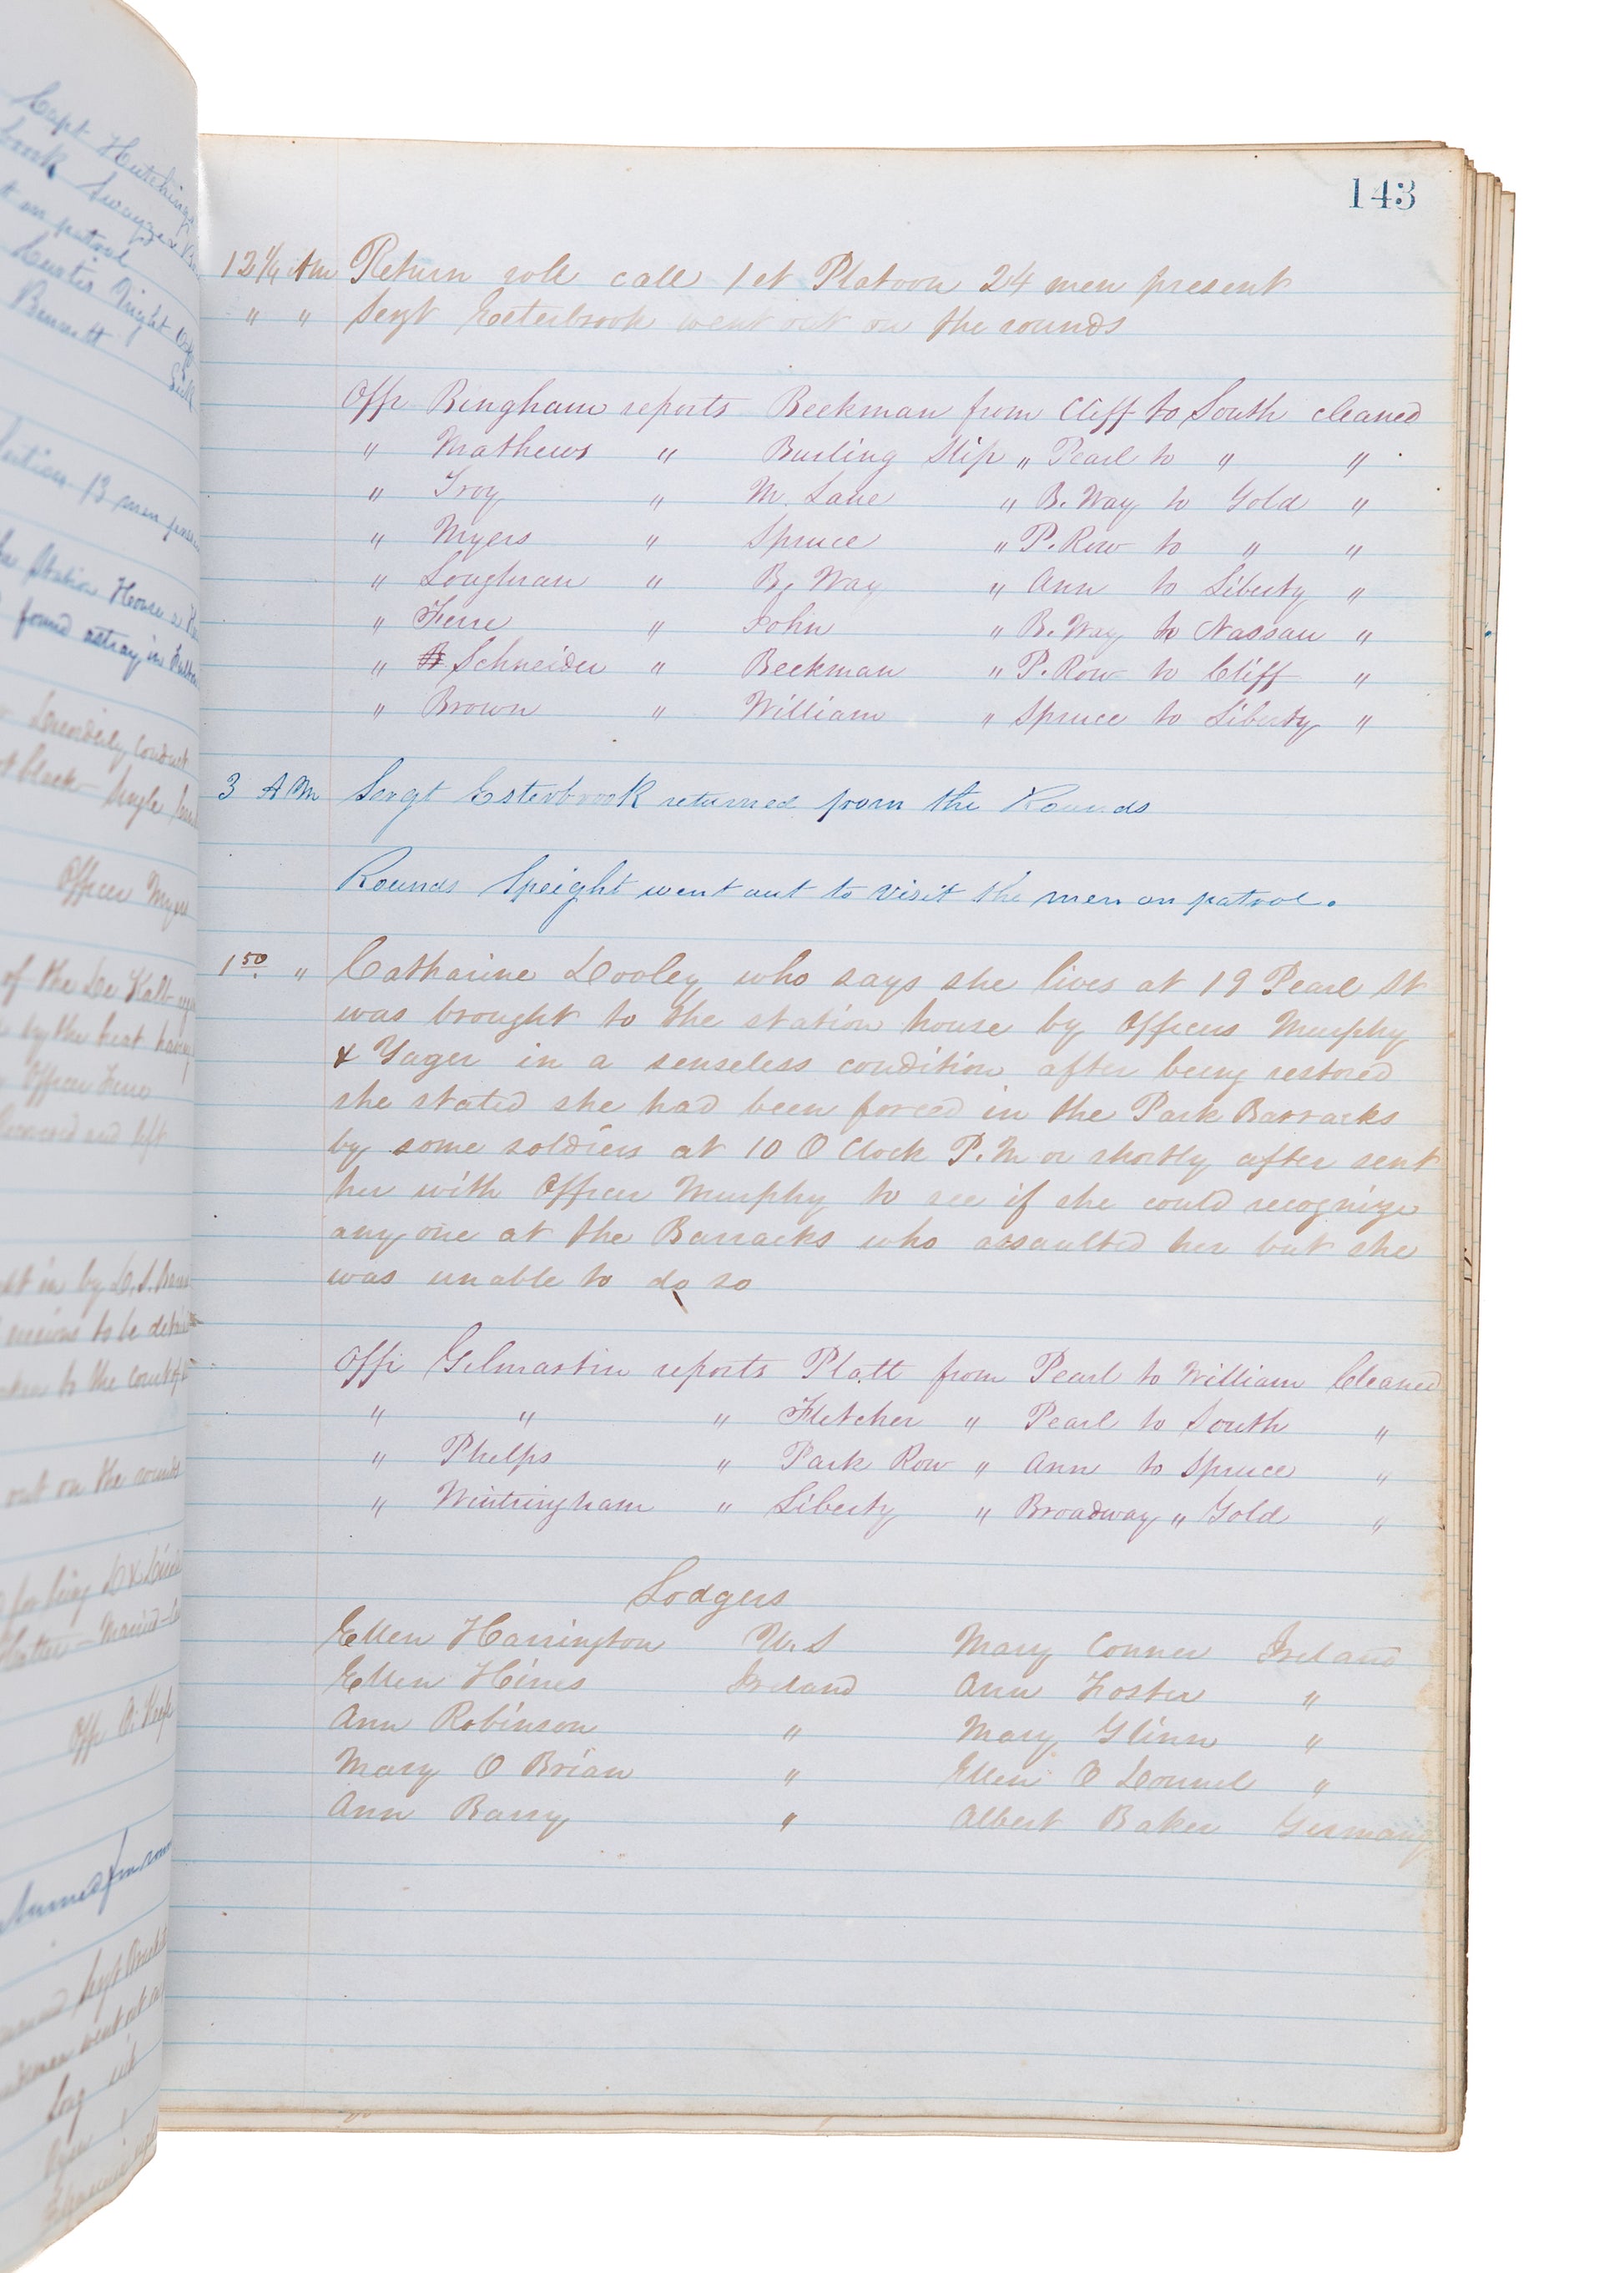 Capt Hutchings
on patrol
Curtis Night
Bennett
Sick
13 men
Station House
found astray in
Disorderly Conduct
black Single
Officer Myers
of the De Kalb
by the heat having
Officer Ferre
Recovered and left
out on the rounds
143
12¼ AM Return roll call 1st Platoon 24 men present
" " Sergt Esterbrook went out on the rounds
Offr Bingham reports Beekman from Cliff to South cleaned
" Mathews " Burling Slip " Pearl to " "
" Troy " M. Lane " B. Way to Gold "
" Myers " Spruce " P. Row to " "
" Loughran " B. Way " Ann to Liberty "
" Ferre " John " B. Way to Nassau "
" Schneider " Beekman " P. Row to Cliff "
" Brown " William " Spruce to Liberty "
3 AM Sergt Esterbrook returned from the Rounds
Rounds Speight went out to visit the men on patrol.
1 50 " Catharine Dooley who says she lives at 19 Pearl St
was brought to the station house by Officers Murphy
& Yager in a senseless condition after being restored
she stated she had been forced in the Park Barracks
by some soldiers at 10 O Clock P.M or shortly after sent
her with Officer Murphy to see if she could recognize
any one at the Barracks who assaulted her but she
was unable to do so
Offr Gilmartin reports Platt from Pearl to William Cleaned
" " " Fletcher " Pearl to South "
" Phelps " Park Row " Ann to Spruce "
" Wintringham " Liberty " Broadway " Gold "
Lodgers
Ellen Harrington U.S Mary Conner Ireland
Ellen Hines Ireland Ann Foster "
Ann Robinson " Mary Glinn "
Mary O Brian " Ellen O Donnel "
Ann Barry " Albert Baker Germany